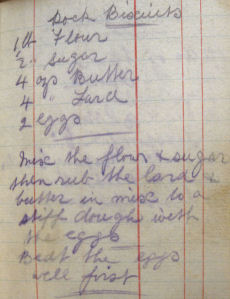 Rock Biscuits
1 lb Flour
1/2 " Sugar
4 ozs Butter
4 " Lard
2 eggs
Mix the flour & sugar
then rub the lard &
butter in mix to a
stiff dough with
the eggs
Beat the eggs
well first